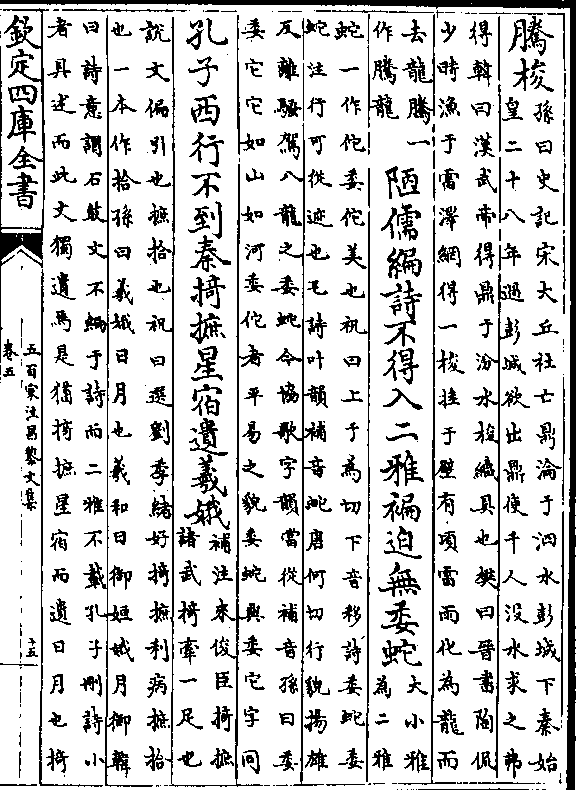 騰梭
孫曰史記宋大丘社亡鼎淪于泗水彭城下秦始
皇二十八年過彭城欲出鼎使千人没水求之弗
得韓曰漢武帝得鼎于汾水梭織具也樊曰晉書陶侃
少時漁于雷澤網得一梭挂于壁有頃雷雨化為龍而
去龍騰一
作騰龍
陋儒編詩不得入二雅褊迫無委蛇
大小雅
為二雅
蛇一作佗委佗美也祝曰上于為切下音移詩委蛇委
蛇注行可從迹也毛詩叶韻補音蛇唐何切行貌揚雄
反離騷駕八龍之委蛇今協歌字韻當從補音孫曰委
委它它如山如河委佗者平易之貌委蛇與委它字同
孔子西行不到秦掎摭星宿遺羲娥
補注來俊臣掎摭
諸武掎牽一足也
説文偏引也摭拾也祝曰選劉季緒好掎摭利病摭拾
也一本作拾孫曰羲娥日月也羲和日御姮娥月御韓
曰詩意謂石鼓文不編于詩而二雅不載孔子刪詩小
者具述而此文獨遺焉是猶掎摭星宿而遺日月也掎
欽定四庫全書
五百家注昌黎文集
卷五
十五